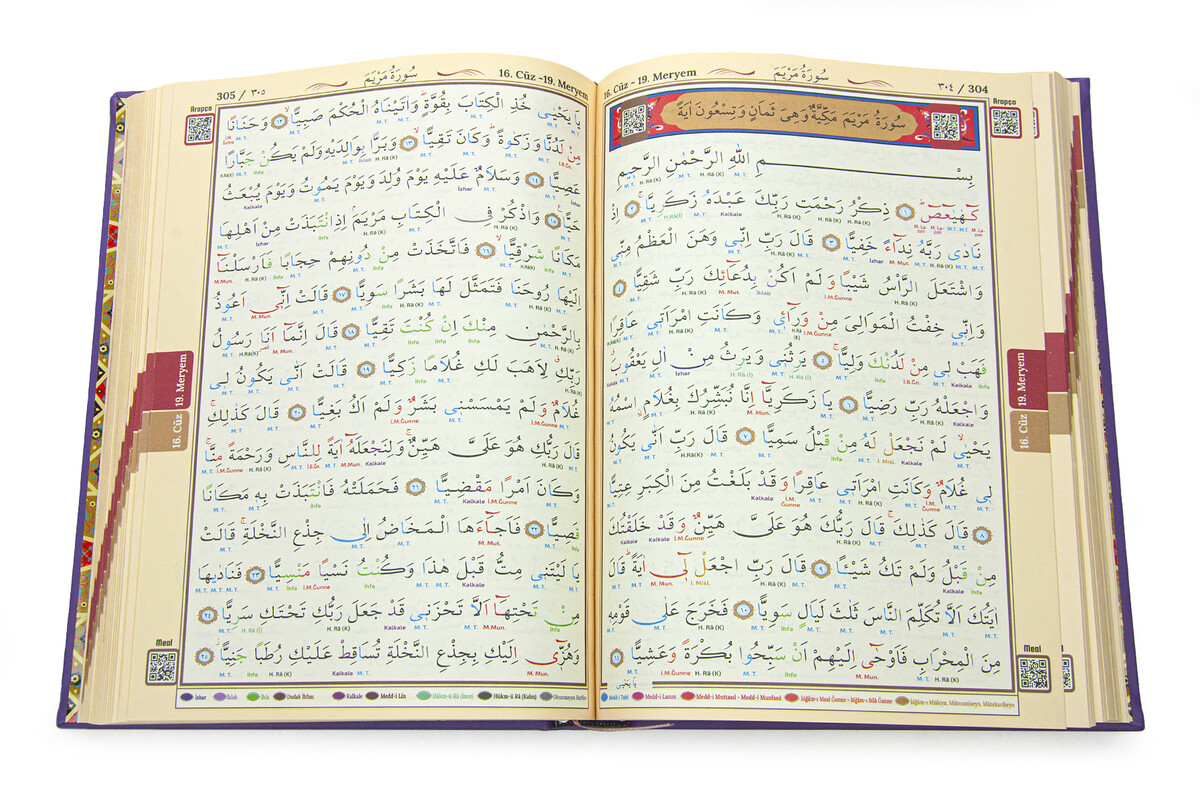 ٣٠٤ / 304
سُورَةُ مَرْيَمَ
16. Cüz - 19. Meryem
Arapça
سُورَةُ مَرْيَمَ مَكِّيَّةٌ وَهِىَ ثَمَانٍ وَتِسْعُونَ اٰيَةً
بِسْــــــــــــــــــــــــمِ اللّٰهِ الرَّحْمٰنِ الرَّحٖيمِ
كٓهٰيٰعٓصٓ ﴿١﴾ ذِكْرُ رَحْمَتِ رَبِّكَ عَبْدَهُ زَكَرِيَّا ﴿٢﴾ اِذْ
نَادٰى رَبَّهُ نِدَٓاءً خَفِيًّا ﴿٣﴾ قَالَ رَبِّ اِنّٖى وَهَنَ الْعَظْمُ مِنّٖى
وَاشْتَعَلَ الرَّأْسُ شَيْبًا وَلَمْ اَكُنْ بِدُعَٓائِكَ رَبِّ شَقِيًّا ﴿٤﴾
وَاِنّٖى خِفْتُ الْمَوَالِىَ مِنْ وَرَٓاءٖى وَكَانَتِ امْرَاَتٖى عَاقِرًا
فَهَبْ لٖى مِنْ لَدُنْكَ وَلِيًّا ﴿٥﴾ يَرِثُنٖى وَيَرِثُ مِنْ اٰلِ يَعْقُوبَ
وَاجْعَلْهُ رَبِّ رَضِيًّا ﴿٦﴾ يَا زَكَرِيَّٓا اِنَّا نُبَشِّرُكَ بِغُلَامٍ اسْمُهُ
يَحْيٰى لَمْ نَجْعَلْ لَهُ مِنْ قَبْلُ سَمِيًّا ﴿٧﴾ قَالَ رَبِّ اَنّٰى يَكُونُ
لٖى غُلَامٌ وَكَانَتِ امْرَاَتٖى عَاقِرًا وَقَدْ بَلَغْتُ مِنَ الْكِبَرِ عِتِيًّا
﴿٨﴾ قَالَ كَذٰلِكَ قَالَ رَبُّكَ هُوَ عَلَىَّ هَيِّنٌ وَقَدْ خَلَقْتُكَ
مِنْ قَبْلُ وَلَمْ تَكُ شَيْـًٔا ﴿٩﴾ قَالَ رَبِّ اجْعَلْ لٖٓى اٰيَةً قَالَ
اٰيَتُكَ اَلَّا تُكَلِّمَ النَّاسَ ثَلٰثَ لَيَالٍ سَوِيًّا ﴿١٠﴾ فَخَرَجَ عَلٰى قَوْمِهٖ
مِنَ الْمِحْرَابِ فَاَوْحٰٓى اِلَيْهِمْ اَنْ سَبِّحُوا بُكْرَةً وَعَشِيًّا ﴿١١﴾
يَا يَحْيٰى
Meal
19. Meryem
16. Cüz
Medd-i Tabî Medd-i Lazım Medd-i Muttasıl - Medd-i Munfasıl İdğâm-ı Meal Ğunne - İdğâm-ı Bilâ Ğunne İdğâm-ı Misleyn, Mütecaniseyn, Mütekaribeyn
305 / ٣٠٥
سُورَةُ مَرْيَمَ
16. Cüz -19. Meryem
Arapça
يَا يَحْيٰى خُذِ الْكِتَابَ بِقُوَّةٍ وَاٰتَيْنَاهُ الْحُكْمَ صَبِيًّا ﴿١٢﴾ وَحَنَانًا
مِنْ لَدُنَّا وَزَكٰوةً وَكَانَ تَقِيًّا ﴿١٣﴾ وَبَرًّا بِوَالِدَيْهِ وَلَمْ يَكُنْ جَبَّارًا
عَصِيًّا ﴿١٤﴾ وَسَلَامٌ عَلَيْهِ يَوْمَ وُلِدَ وَيَوْمَ يَمُوتُ وَيَوْمَ يُبْعَثُ
حَيًّا ﴿١٥﴾ وَاذْكُرْ فِى الْكِتَابِ مَرْيَمَ اِذِ انْتَبَذَتْ مِنْ اَهْلِهَا
مَكَانًا شَرْقِيًّا ﴿١٦﴾ فَاتَّخَذَتْ مِنْ دُونِهِمْ حِجَابًا فَاَرْسَلْنَٓا
اِلَيْهَا رُوحَنَا فَتَمَثَّلَ لَهَا بَشَرًا سَوِيًّا ﴿١٧﴾ قَالَتْ اِنّٖٓى اَعُوذُ
بِالرَّحْمٰنِ مِنْكَ اِنْ كُنْتَ تَقِيًّا ﴿١٨﴾ قَالَ اِنَّمَٓا اَنَا رَسُولُ
رَبِّكِ لِاَهَبَ لَكِ غُلَامًا زَكِيًّا ﴿١٩﴾ قَالَتْ اَنّٰى يَكُونُ لٖى
غُلَامٌ وَلَمْ يَمْسَسْنٖى بَشَرٌ وَلَمْ اَكُ بَغِيًّا ﴿٢٠﴾ قَالَ كَذٰلِكِ
قَالَ رَبُّكِ هُوَ عَلَىَّ هَيِّنٌ وَلِنَجْعَلَهُٓ اٰيَةً لِلنَّاسِ وَرَحْمَةً مِنَّا
وَكَانَ اَمْرًا مَقْضِيًّا ﴿٢١﴾ فَحَمَلَتْهُ فَانْتَبَذَتْ بِهٖ مَكَانًا
قَصِيًّا ﴿٢٢﴾ فَاَجَٓاءَهَا الْمَخَاضُ اِلٰى جِذْعِ النَّخْلَةِ قَالَتْ
يَا لَيْتَنٖى مِتُّ قَبْلَ هٰذَا وَكُنْتُ نَسْيًا مَنْسِيًّا ﴿٢٣﴾ فَنَادٰيهَا
مِنْ تَحْتِهَٓا اَلَّا تَحْزَنٖى قَدْ جَعَلَ رَبُّكِ تَحْتَكِ سَرِيًّا ﴿٢٤﴾
وَهُزّٖٓى اِلَيْكِ بِجِذْعِ النَّخْلَةِ تُسَاقِطْ عَلَيْكِ رُطَبًا جَنِيًّا ﴿٢٥﴾
Meal
19. Meryem
16. Cüz
İzhar İklab İhfa Dudak İhfası Kalkale Medd-i Lin Hükm-ü Râ (İnce) Hükm-ü Râ (Kalın) Okunmayan Harfler